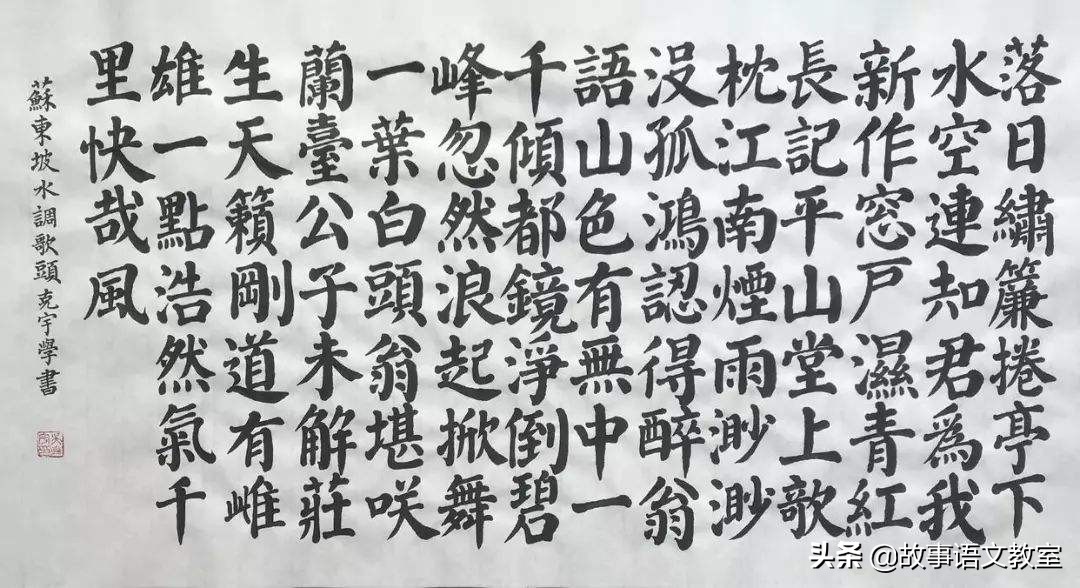 落日繡簾捲亭下
水空連知君爲我
新作窓戶濕青紅
長記平山堂上歌
枕江南煙雨渺渺
没孤鴻認得醉翁
語山色有無中一
千傾都鏡淨倒碧
峰忽然浪起掀舞
一葉白頭翁堪咲
蘭臺公子未解莊
生天籟剛道有雌
雄一點浩然氣千
里快哉風
蘇東坡水調歌頭克宇學書
头条 @故事语文教室